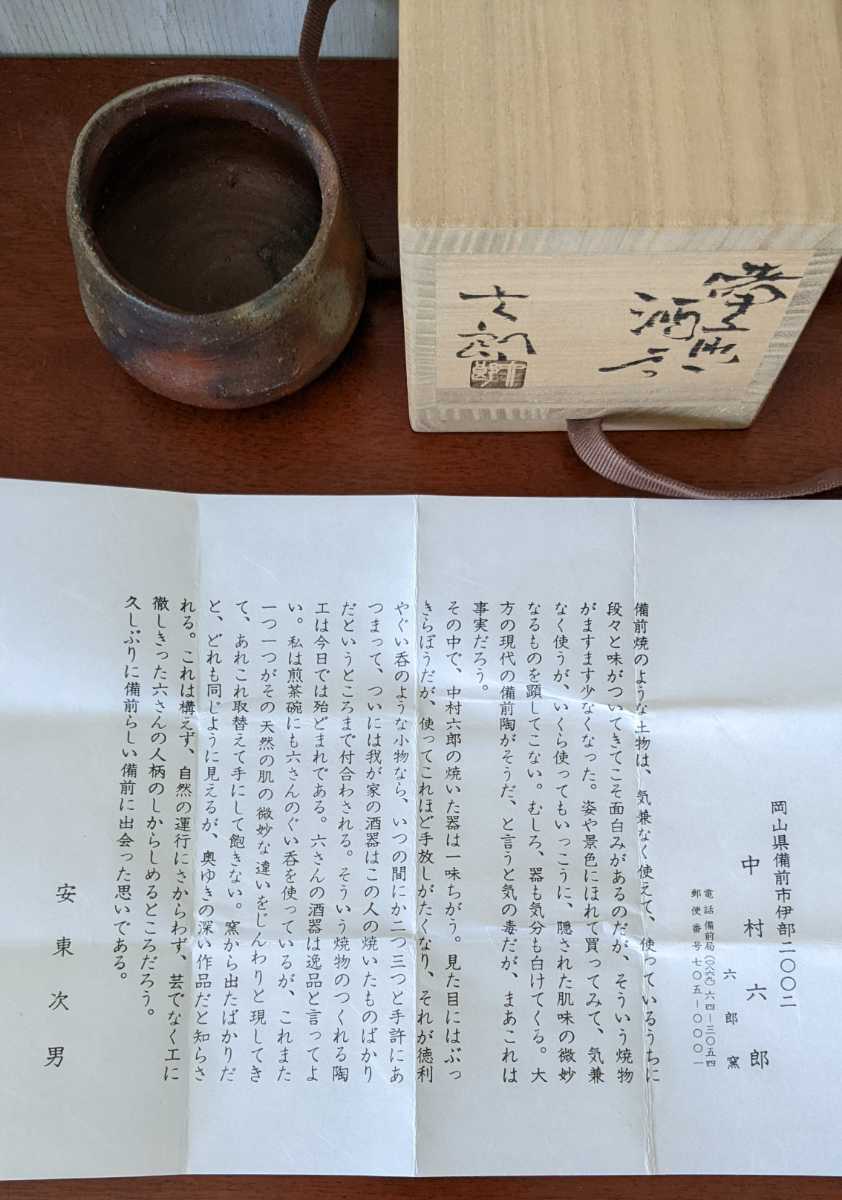 備前
酒呑
六郎
岡山県備前市伊部二〇〇二
中村六郎
六郎窯
電話 備前局(〇八六九)六四-三〇五四
郵便番号七〇五-〇〇〇一
備前焼のような土物は、気兼なく使えて、使っているうちに
段々と味がついてきてこそ面白みがあるのだが、そういう焼物
がますます少なくなった。姿や景色にほれて買ってみて、気兼
なく使うが、いくら使ってもいっこうに、隠された肌味の微妙
なるものを顕してこない。むしろ、器も気分も白けてくる。大
方の現代の備前陶がそうだ、と言うと気の毒だが、まあこれは
事実だろう。
その中で、中村六郎の焼いた器は一味ちがう。見た目にはぶっ
きらぼうだが、使ってこれほど手放しがたくなり、それが徳利
やぐい呑のような小物なら、いつの間にか二つ三つと手許にあ
つまって、ついには我が家の酒器はこの人の焼いたものばかり
だというところまで付合わされる。そういう焼物のつくれる陶
工は今日では殆どまれである。六さんの酒器は逸品と言ってよ
い。私は煎茶碗にも六さんのぐい呑を使っているが、これまた
一つ一つがその天然の肌の微妙な違いをじんわりと現してき
て、あれこれ取替えて手にして飽きない。窯から出たばかりだ
と、どれも同じように見えるが、奥ゆきの深い作品だと知らさ
れる。これは構えず、自然の運行にさからわず、芸でなく工に
徹しきった六さんの人柄のしからしめるところだろう。
久しぶりに備前らしい備前に出会った思いである。
安東次男